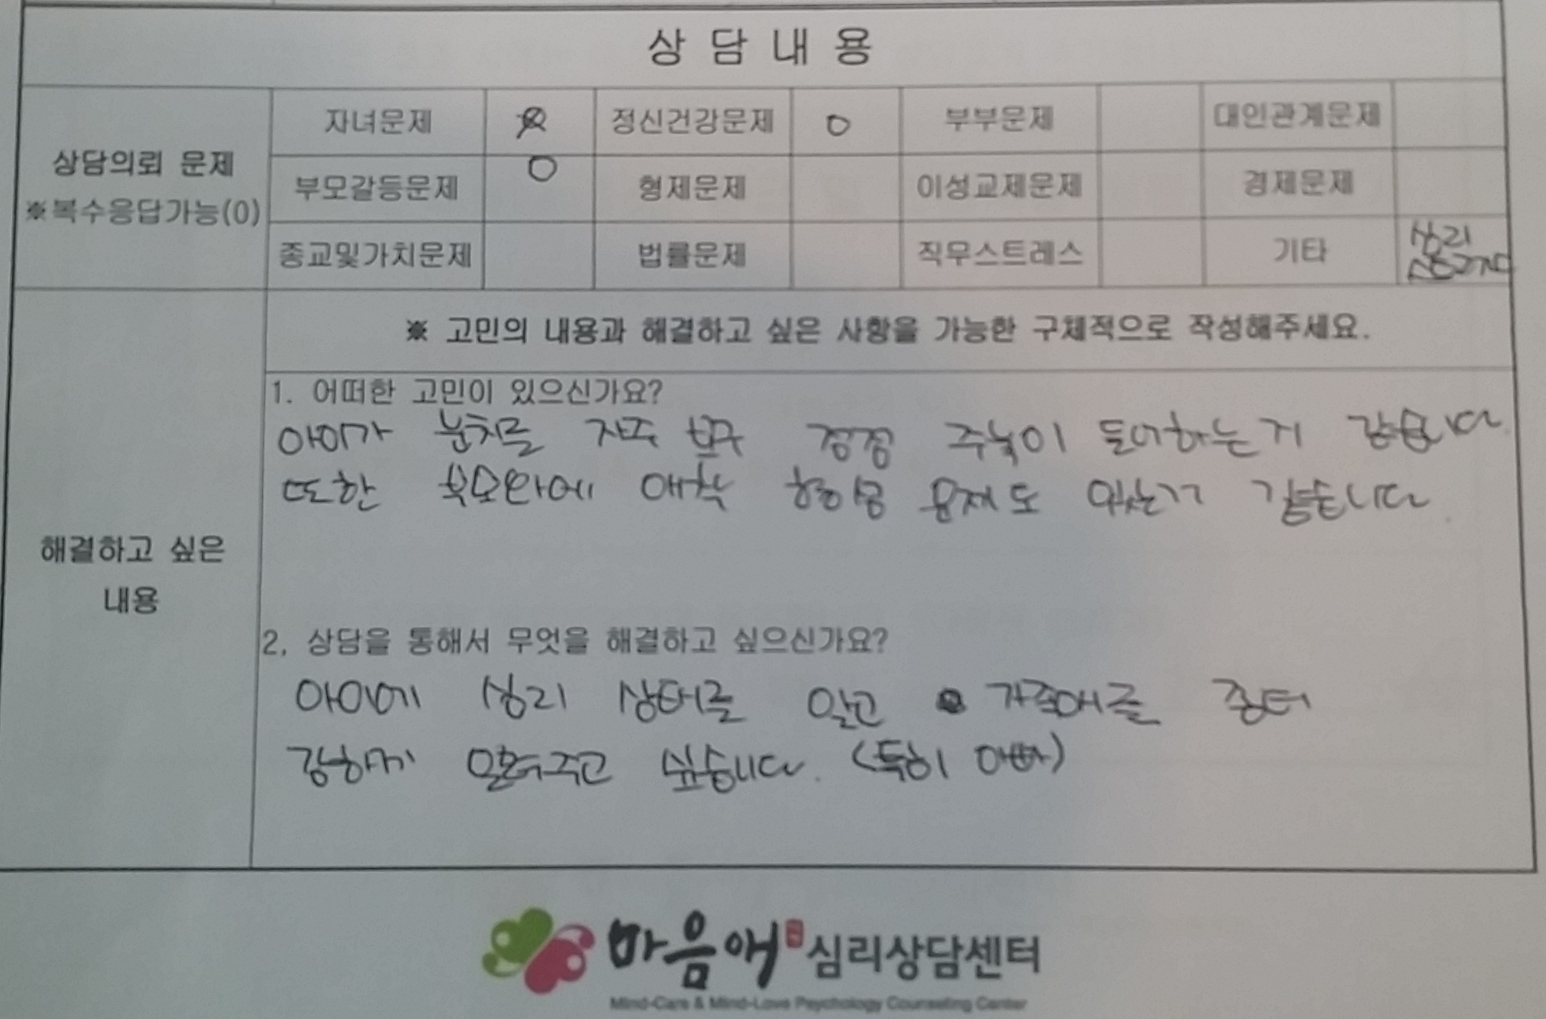 상 담 내 용
상담의뢰 문제
※복수응답가능(0)
자녀문제 정신건강문제 O 부부문제 대인관계문제
부모갈등문제 O 형제문제 이성교제문제 경제문제
종교및가치문제 법률문제 직무스트레스 기타 심리
해결하고 싶은
내용
※ 고민의 내용과 해결하고 싶은 사항을 가능한 구체적으로 작성해주세요.
1. 어떠한 고민이 있으신가요?
아이가 눈치를 자주 보구 점점 주눅이 들어하는거 같습니다.
또한 부모와에 애착 형성 문제도 있는거 같습니다.
2, 상담을 통해서 무엇을 해결하고 싶으신가요?
아이에 심리 상태를 알고
싶습니다. (특히 아빠)
마음애 심리상담센터
Mind-Care & Mind-Love Psychology Counseling Center